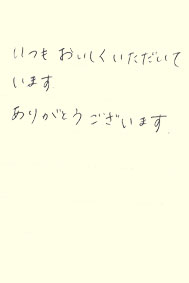 いつもおいしくいただいて
います.
ありがとうございます.